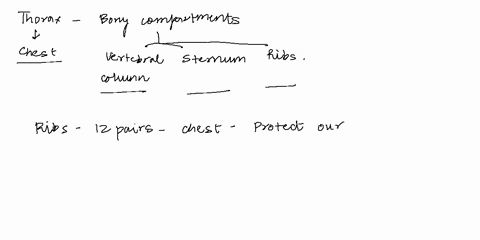 Thorax - Bony compartments
Chest
Vertebral column Sternum Ribs.
Ribs - 12 pairs - chest - Protect our